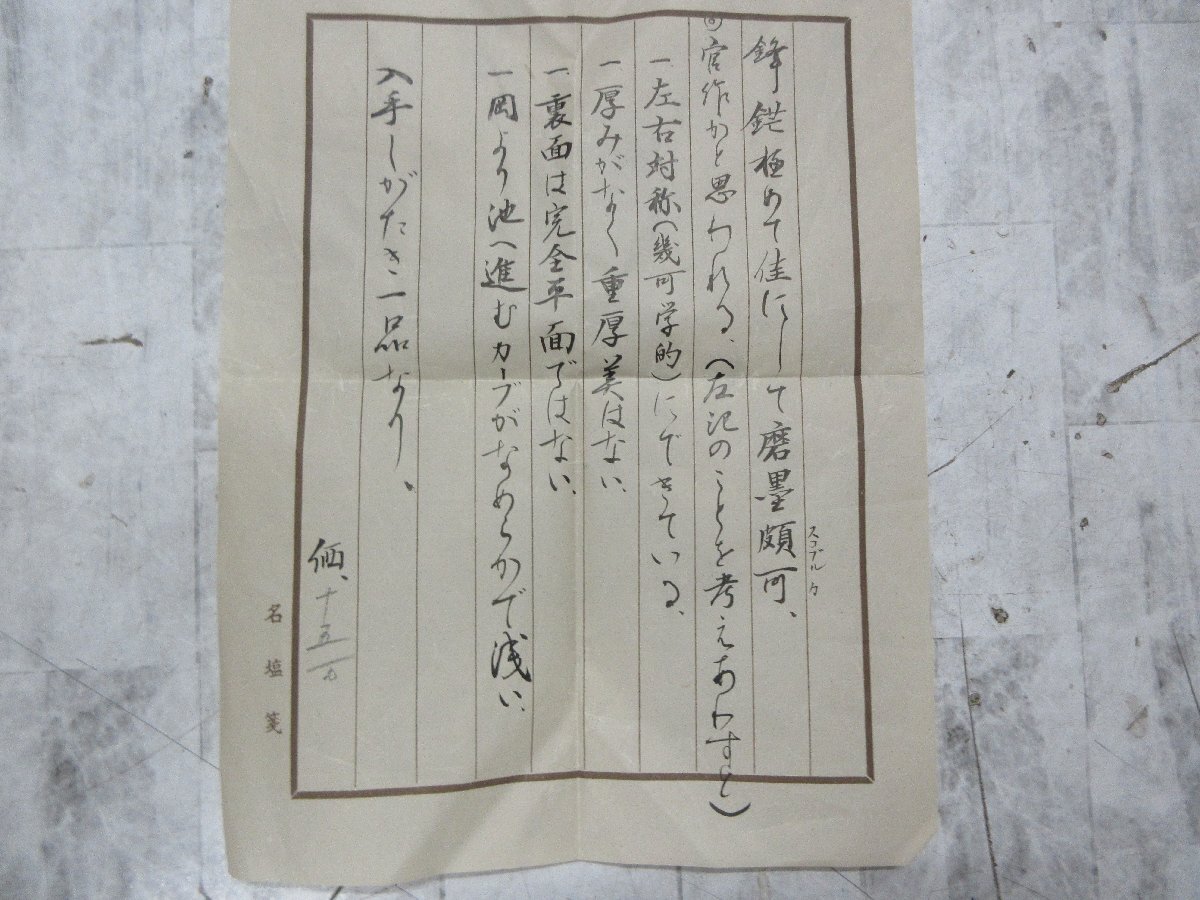 鋒鋩極めて佳にして磨墨頗可、
スコブル カ
◎官作かと思われる、(左記のことを考えあわすと)
一左右対称(幾可学的)にできている、
一厚みがなく重厚美はない、
一裏面は完全平面ではない、
一岡より池へ進むカーブがなめらかで浅い、
入手しがたき一品なり、
価、十五万
名塩箋